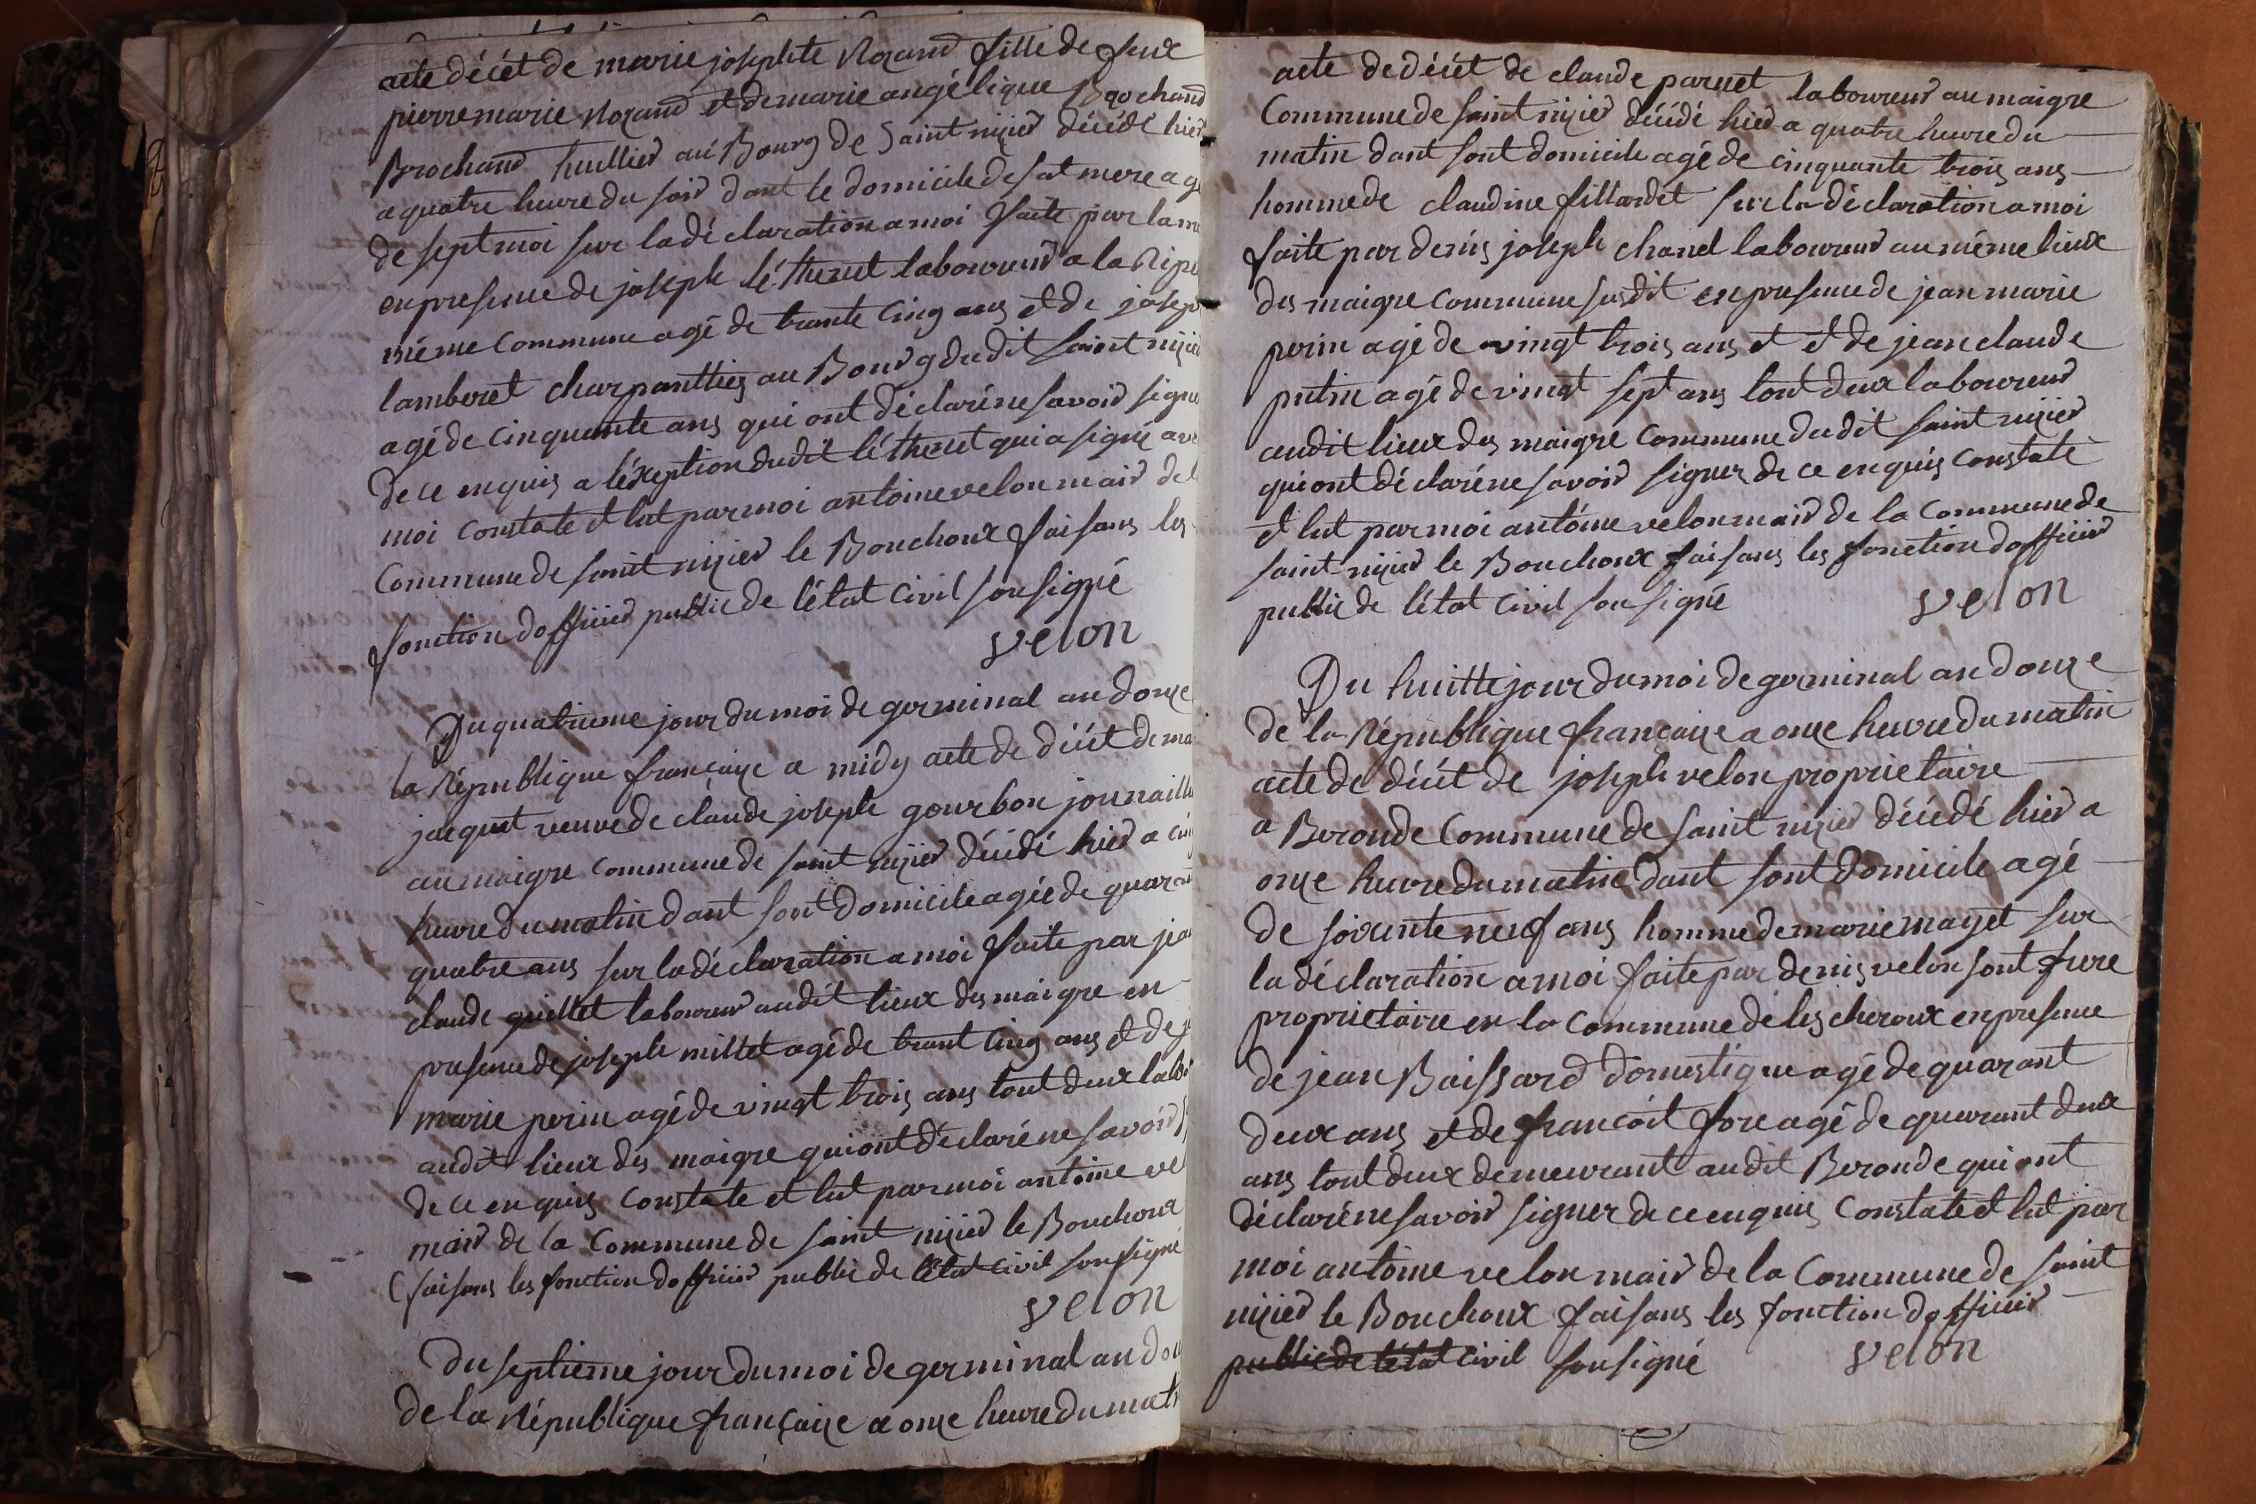 acte décét de marie josephte Nozand fille de feux
pierre marie Nozand et de marie angélique Brochand
Brochand huillier au Bourg de Saint nizier décédé hier
a quatre heure du soir dant le domicile de sat mere agé
de sept moi sur la déclaration a moi faite par la
en presence de joseph léthenet laboureur a la
même Commune agé de trante Cinq ans et de
lamberet charpanttiez au Bourg dudit saint nizier
agé de Cinquante ans qui ont déclaré ne savoir
de ce enquis a léxeption dudit léthenet qui a signé
moi Constate et lut par moi antoine velon mair
Commune de saint nizier le Bouchoux faisans les
fonction dofficier public de létat Civil sousigné
velon
Du quatrieme jour du moi de germinal an douze
la République françaize a midy acte de décét de
jacquet veuve de claude joseph gourbon
au maigre Commune de saint nizier décédé hier a
heure du matin dant sont domicile agée de
quatre ans sur la déclaration a moi faite par
claude guillet laboureur audit lieux des maigre en
presence de joseph millet agé de trant Cinq ans et de
marie perin agé de vingt trois ans tout deux
audit lieux des maigre qui ont déclaré ne savoir
de ce enquis Constate et lut par moi antoine
mair de la Commune de saint nizier le Bouchoux
faisans les fonction dofficier public de létat Civil sousigné
velon
Du septieme jour du moi de germinal an
de la République françaize a onze heure du
acte de décét de claude parnet laboureur au maigre
Commune de saint nizier décédé hier a quatre heure du
matin dant sont domicile agé de cinquante trois ans
homme de claudine fillardet sur la déclaration a moi
faite par denis joseph chanel laboureur au même lieux
des maigre Commune susdit en presence de jean marie
perin agé de vingt trois ans et et de jean claude
putin agé de vingt sept ans tout deux laboureur
audit lieux des maigre Commune dudit saint nizier
qui ont déclaré ne savoir signer de ce enquis Constate
et lut par moi antoine velon mair de la Commune de
saint nizier le Bouchoux faisans les fonction dofficier
public de létat Civil sousigné
velon
Du huitte jour du moi de germinal an douze
de la République françaize a onze heure du matin
acte de décét de joseph velon proprietaire
a Beronde Commune de saint nizier décédé hier a
onze heure du matin dant sont domicile agé
de soixante neuf ans homme de marie mayet sur
la déclaration a moi faite par denis velon sont frere
proprietaire en la Commune de lescheroux en presence
de jean Baissard domestique agé de quarant
deux ans et de françoit fore agé de quarant deux
ans tout deux demeurant audit Beronde qui ont
déclaré ne savoir signer de ce enquis Constate et lut par
moi antoine velon mair de la Commune de saint
nizier le Bouchoux faisans les fonction dofficier
public de létat Civil sousigné
velon